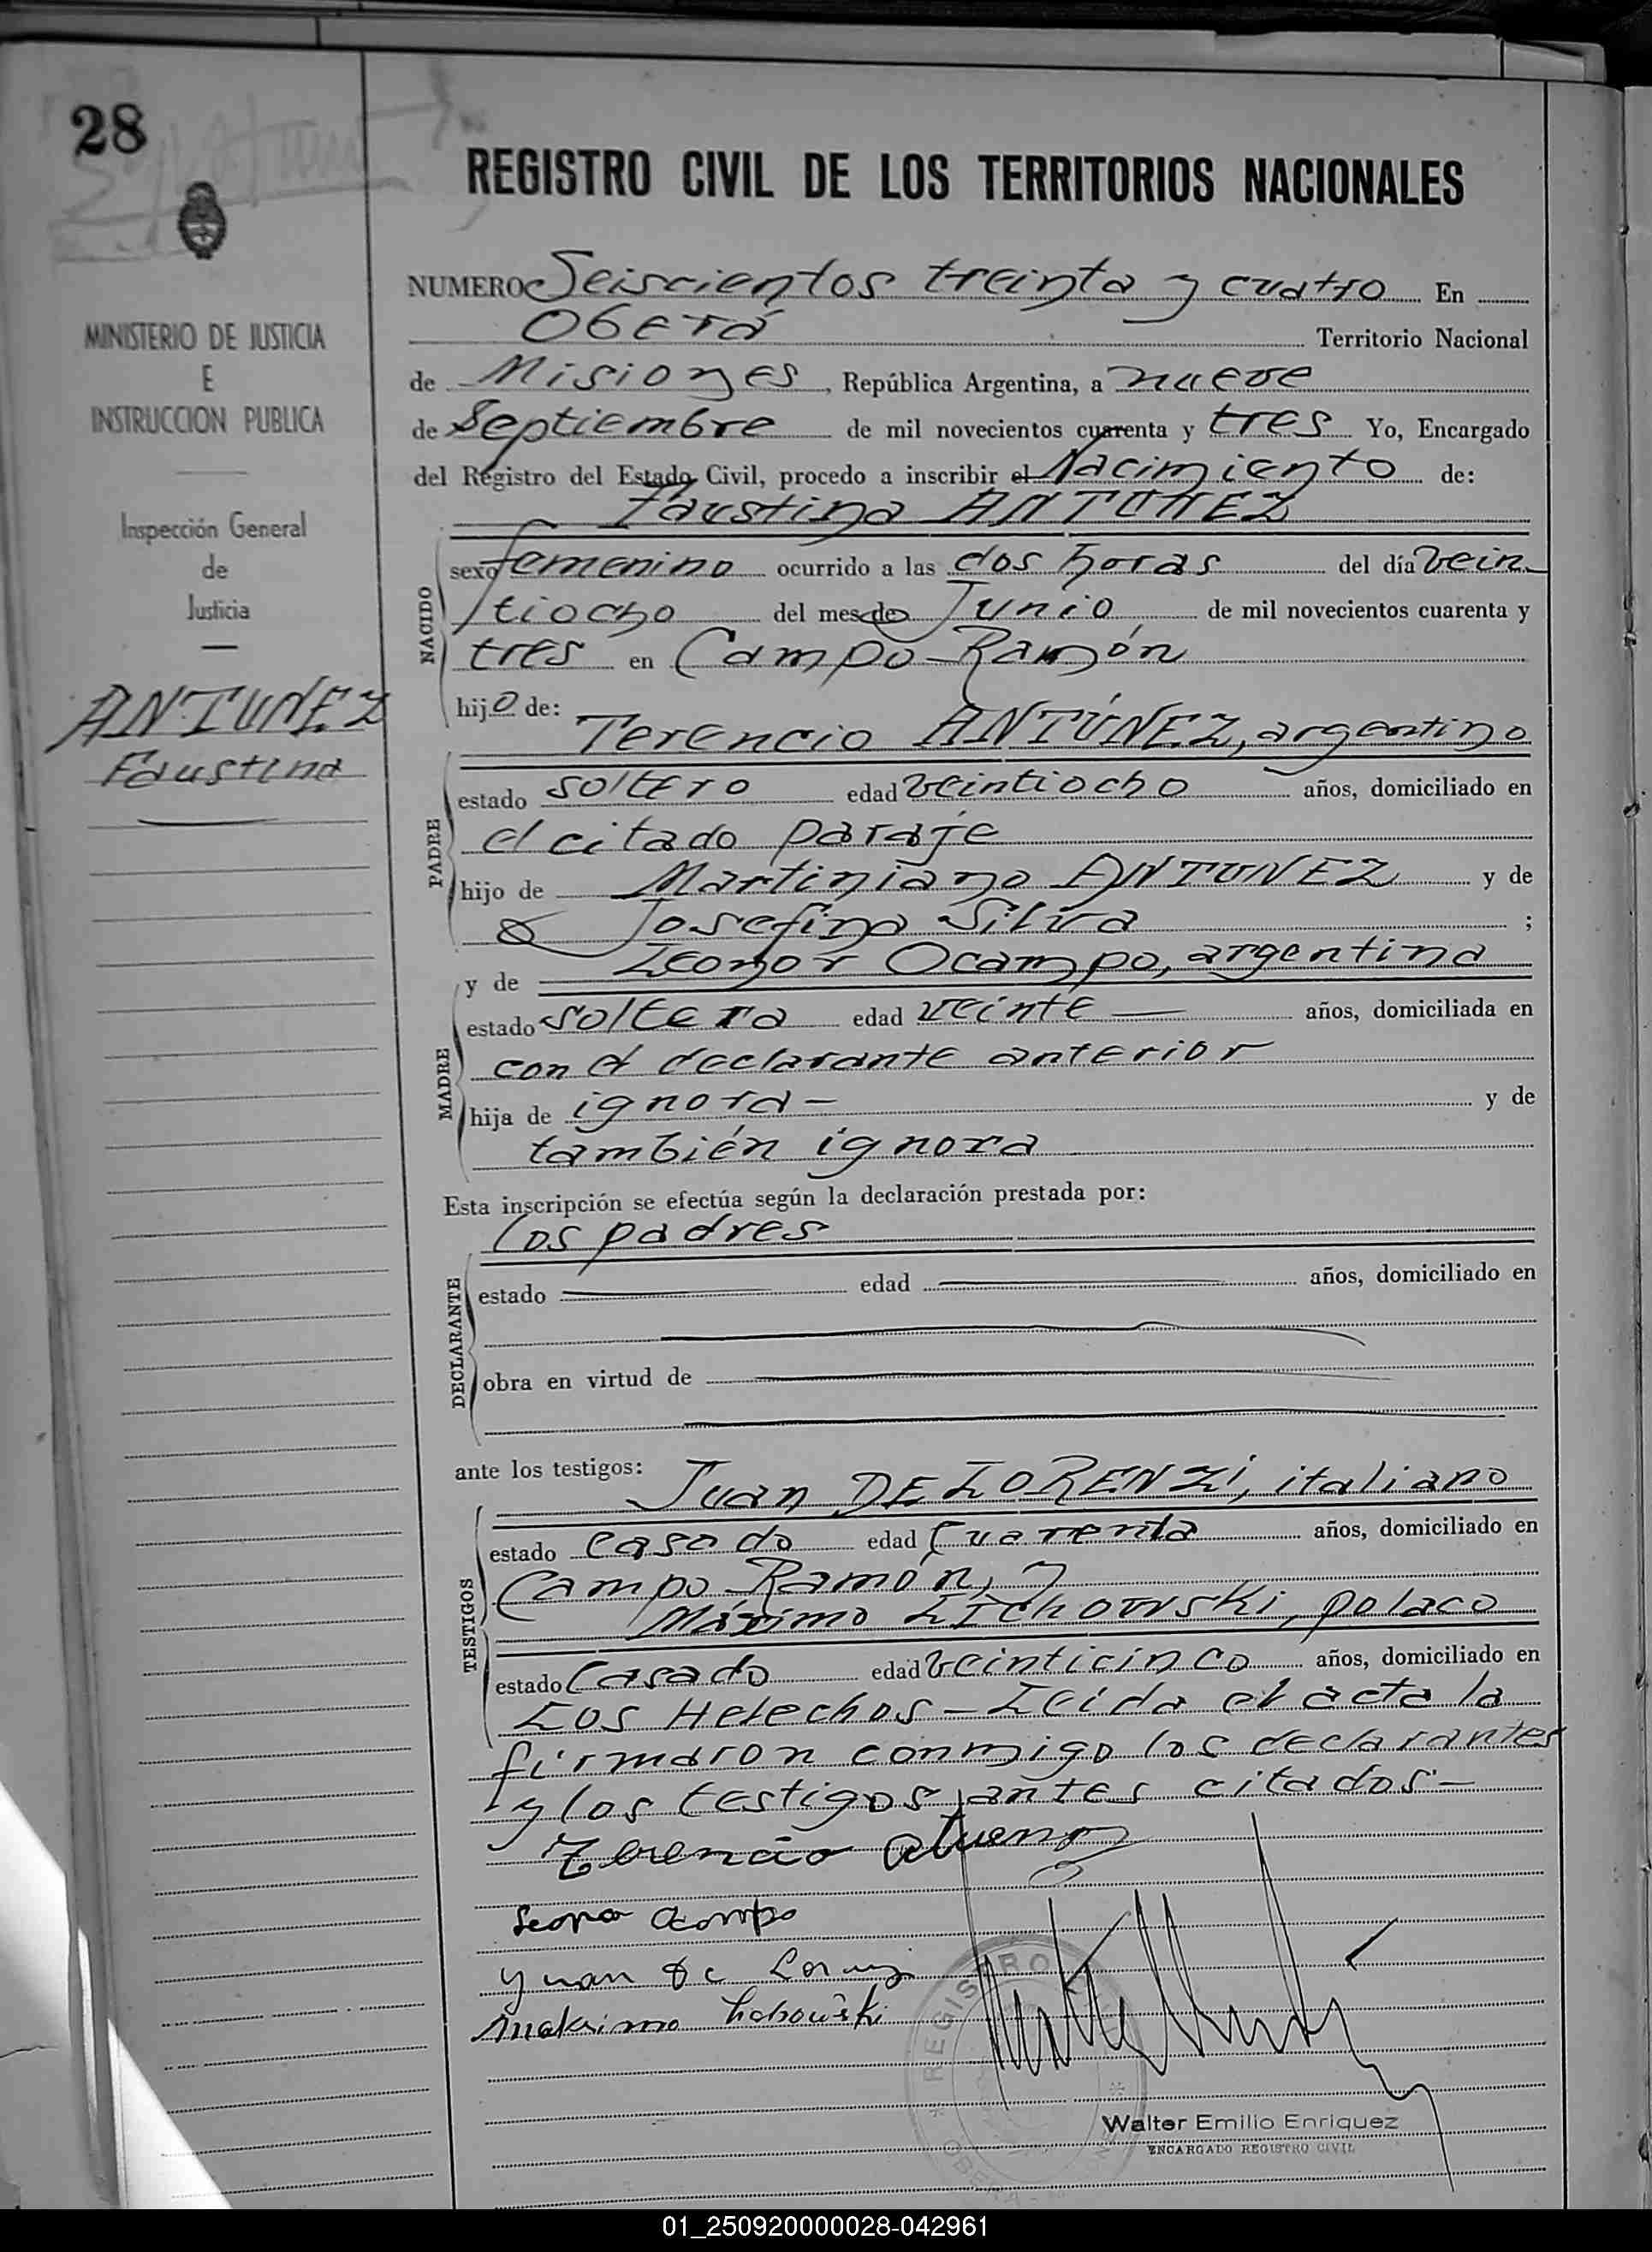 28
REGISTRO CIVIL DE LOS TERRITORIOS NACIONALES
MINISTERIO DE JUSTICIA
E
INSTRUCCION PUBLICA
Inspección General
de
Justicia
ANTUNEZ
Faustina
NUMERO Seiscientos treinta y cuatro En
Oberá Territorio Nacional
de Misiones, República Argentina, a nueve
de Septiembre de mil novecientos cuarenta y tres Yo, Encargado
del Registro del Estado Civil, procedo a inscribir el Nacimiento de:
Faustina ANTUNEZ
NACIDO
sexo femenino ocurrido a las dos horas del día vein
tiocho del mes de Junio de mil novecientos cuarenta y
tres en Campo Ramón
hijo de:
Terencio ANTÚNEZ, argentino
PADRE
estado soltero edad veintiocho años, domiciliado en
el citado paraje
hijo de Martiniano ANTUNEZ y de
Josefina Silva ;
y de Leonor Ocampo, argentina
MADRE
estado soltera edad veinte años, domiciliada en
con el declarante anterior
hija de ignora- y de
también ignora
Esta inscripción se efectúa según la declaración prestada por:
los padres
DECLARANTE
estado edad años, domiciliado en
obra en virtud de
ante los testigos:
Juan DE LORENZI, italiano
TESTIGOS
estado casado edad cuarenta años, domiciliado en
Campo Ramón, y
Máximo LICHOWSKI, polaco
estado Casado edad veinticinco años, domiciliado en
Los Helechos - Leida el acta la
firmaron conmigo los declarantes
y los testigos antes citados.-
Terencio
Leonor Ocampo
Yuan De Lorenzi
Maksimo Lichowski
REGISTRO
Walter Emilio Enriquez
ENCARGADO REGISTRO CIVIL
01_250920000028-042961